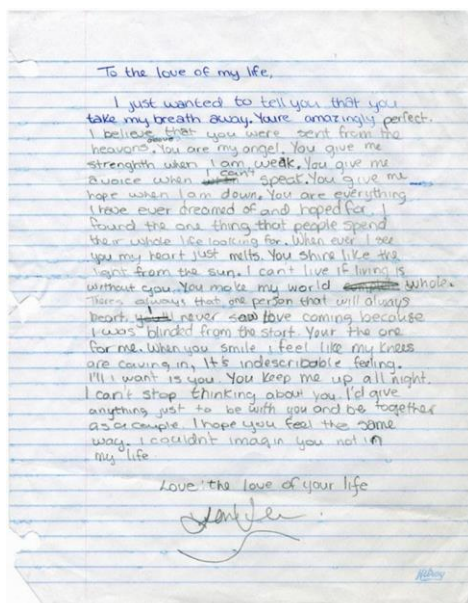 To the love of my life,
I just wanted to tell you that you
take my breath away. Youre amazingly perfect.
I believe that you were sent from the
heavons above. You are my angel. You give me
strenghth when I am weak. You give me
a voice when I can't speak. You give me
hope when I am down. You are everything
I have ever dreamed of and hoped for. I
found the one thing that people spend
their whole life looking for. When ever I see
you my heart just melts. You shine like the
light from the sun. I can't live if living is
without you. You make my world whole.
Theres always that one person that will always
heart. I never saw love coming because
I was blinded from the start. Your the one
for me. When you smile i feel like my knees
are caving in, It's indescribable feeling.
I'll I want is you. You keep me up all night.
I can't stop thinking about you. I'd give
anything just to be with you and be together
as a couple. I hope you feel the same
way. I couldn't imagin you not in
my life.
Love: the love of your life
Hilroy